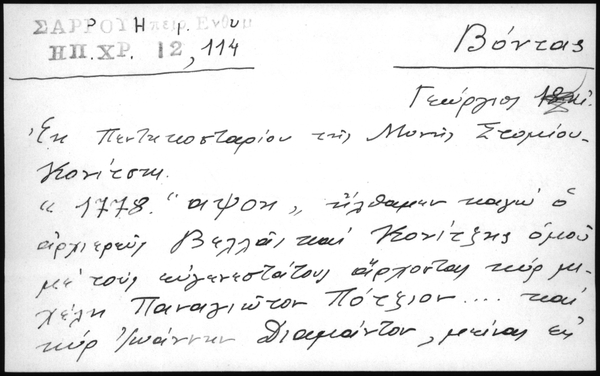 ΣΑΡΡΟΥ Ηπειρ. Ενθυμ
ΗΠ. ΧΡ. 12, 114
Βόντας
Γεώργιος
Ἐκ Πεντηκοσταρίου τῆς Μονῆς Στομίου-
Κονίτσης.
« 1778. "αψοη„ ἤλθαμεν καγώ ὁ
ἀρχιερεύς Βελλᾶς καί Κονίτζης ὁμοῦ
μέ τούς εὐγενεστάτους ἄρχοντας κύρ Μι-
χέλη Παναγιῶτον Πότζιον .... καί
κύρ Ἰωάννην Διαμάντον, μείνας εἰς